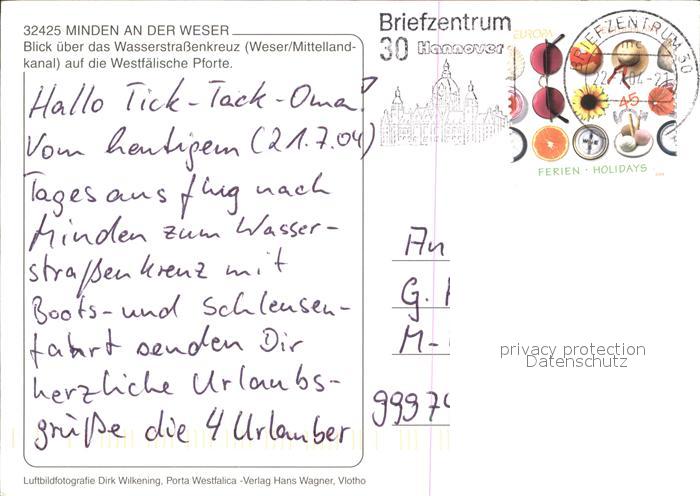 32425 MINDEN AN DER WESER
Blick über das Wasserstraßenkreuz (Weser/Mittelland-
kanal) auf die Westfälische Pforte.
Hallo Tick-Tack-Oma!
Vom heutigem (21.7.04)
Tagesausflug nach
Minden zum Wasser-
straßenkreuz mit
Boots- und Schleusen-
fahrt senden Dir
herzliche Urlaubs-
grüße die 4 Urlauber
Luftbildfotografie Dirk Wilkening, Porta Westfalica -Verlag Hans Wagner, Vlotho
Briefzentrum
30 Hannover
EUROPA
BRIEFZENTRUM 30
45
FERIEN · HOLIDAYS
An
G.
M-
9997
privacy protection
Datenschutz